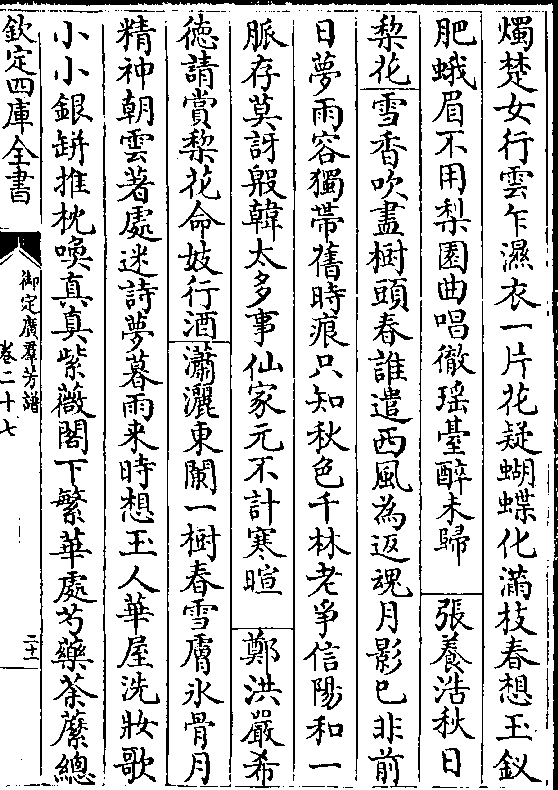 燭楚女行雲乍濕衣一片花疑蝴蝶化滿枝春想玉釵
肥蛾眉不用梨園曲唱徹瑶臺醉未歸　張養浩秋日
梨花雪香吹盡樹頭春誰遣西風為返魂月影已非前
日夢雨容獨帶舊時痕只知秋色千林老爭信陽和一
脈存莫訝殷韓太多事仙家元不計寒暄　鄭洪嚴希
徳請賞梨花命妓行酒瀟灑東闌一樹春雪膚氷骨月
精神朝雲著處迷詩夢暮雨来時想玉人華屋洗妝歌
小小銀缾推枕喚真真紫薇閣下繁華處芍藥荼蘼總
欽定四庫全書
御定廣羣芳譜
卷二十七
二十一